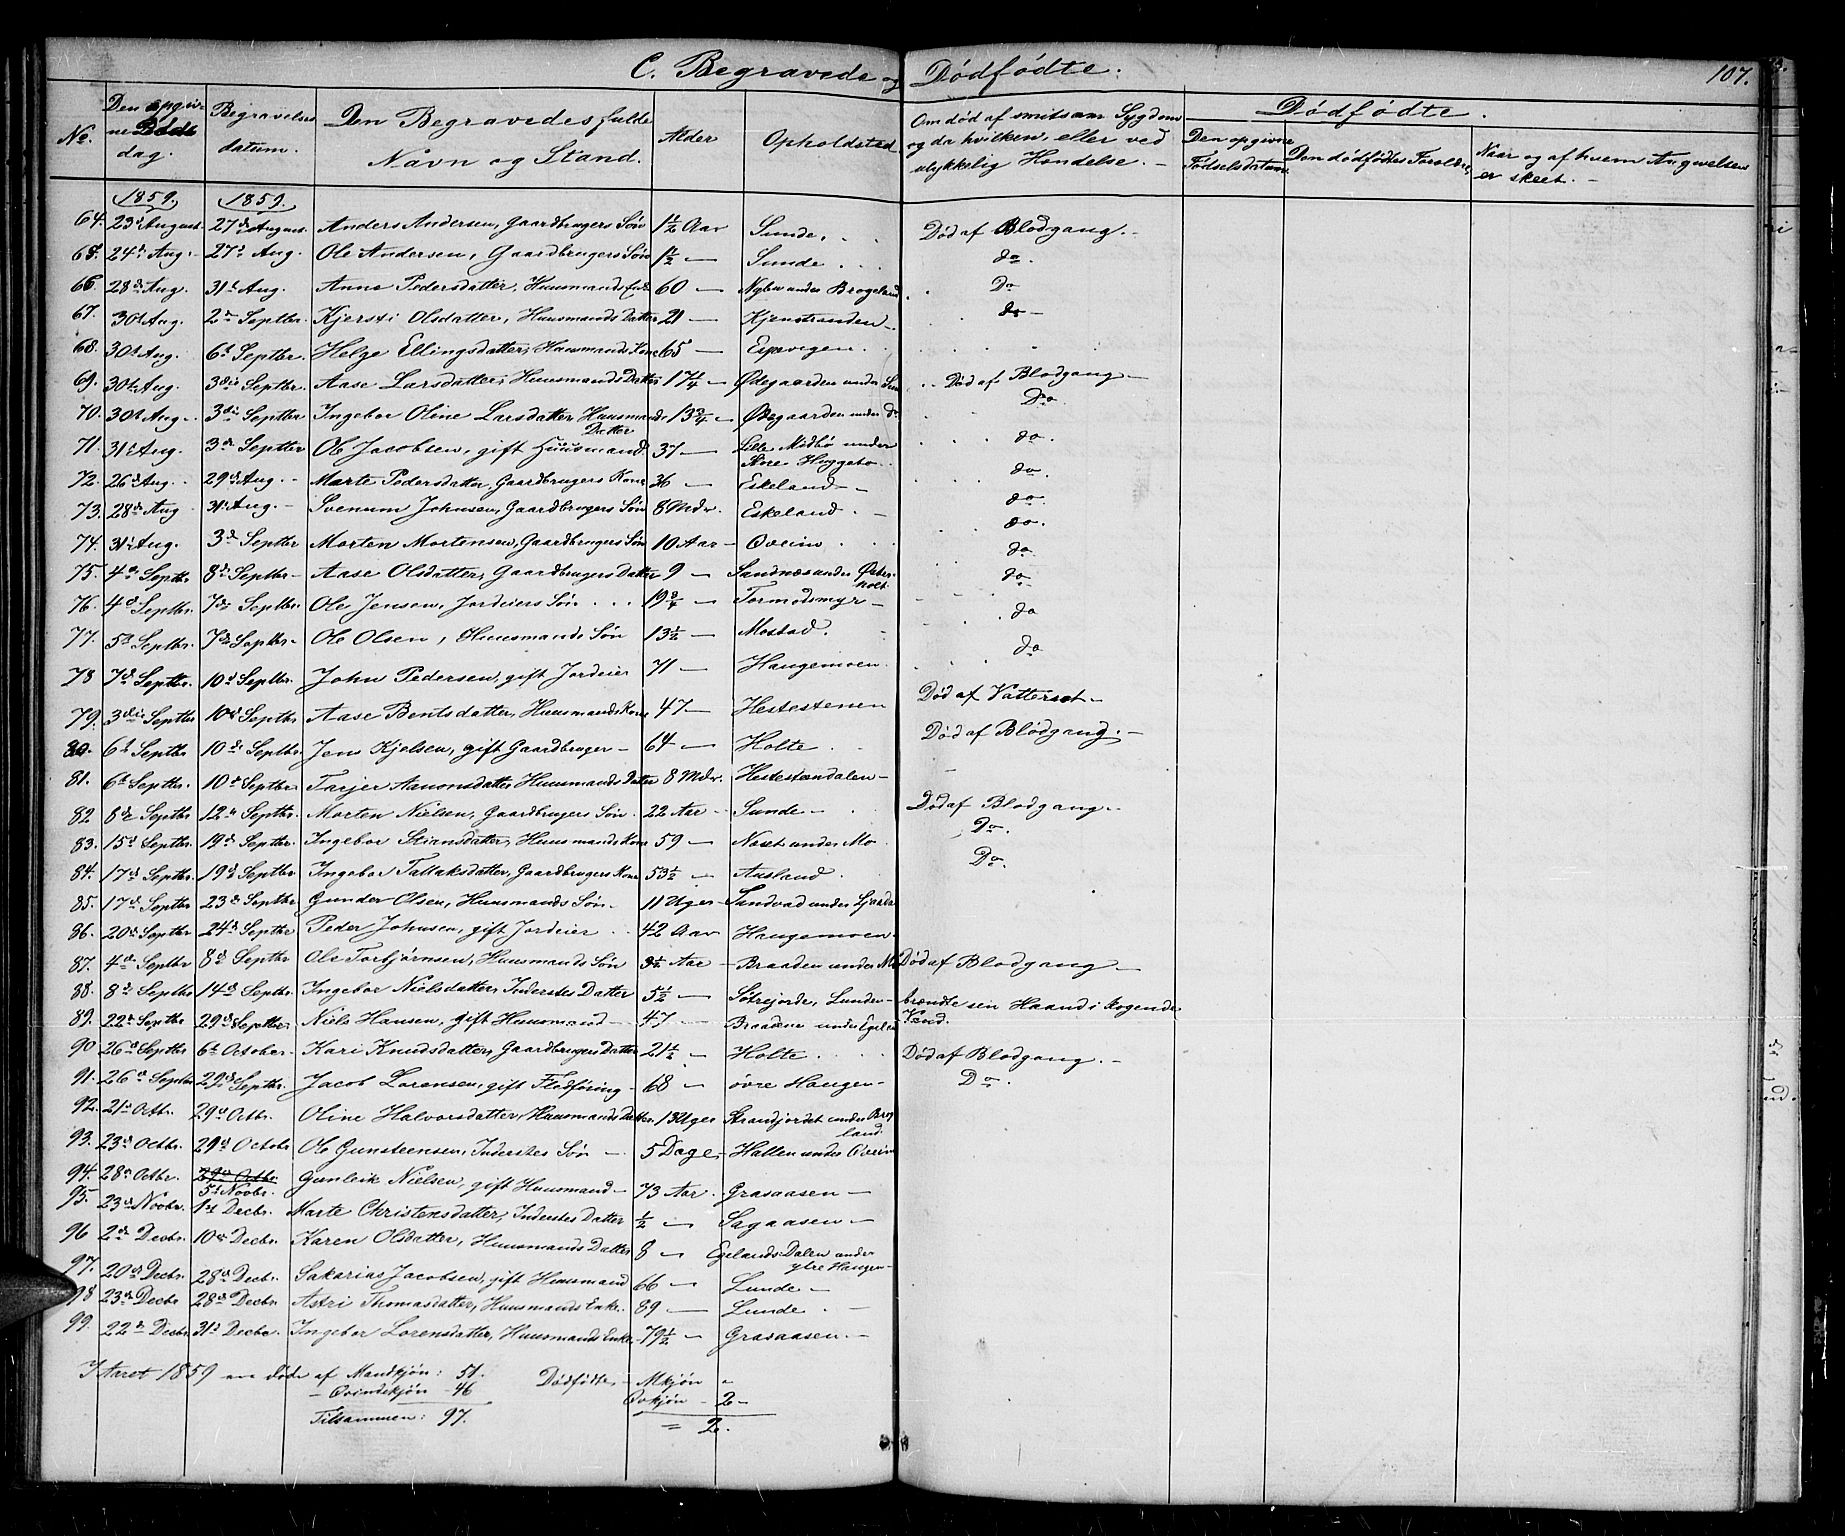 C. Begravede og Dødfødte. 107.
No. Den opgivne Døds dag. Begravelses datum. Den Begravedes fulde Navn og Stand. Alder Opholdsted Om død af smitsom Sygdom og da hvilken, eller ved ulykkelig Hændelse. - Dødfødte. Den opgivne Fødselsdatum. Den dødfødtes Forældre, Naar og af hvem Angivelsen er skeet. -
1859. 1859.
64. 23de August 27de August Anders Andersen, Gaardbrugers Søn 1½ Aar Sunde. Død af Blodgang. -
65. 24de Aug. 27de Aug. Ole Andersen, Gaardbrugers Søn 1½ — Sunde do.
66. 28de Aug. 31te Aug. Anne Pedersdatter, Huusmands Enke 60 — under Brogeland Do
67. 30te Aug. 2den Septbr. Kjersti Olsdatter, Huusmands Datter 21 — Kjenstranden do -
68. 30te Aug. 6te Septbr. Helge Ellingsdatter, Huusmands Kone 65 — Espevigen
69. 30te Aug. 3die Septbr. Aase Larsdatter, Huusmands Datter 17¼ — Ødegaarden under Død af Blodgang -
70. 30te Aug. 3die Septbr Ingebor Oline Larsdatter Huusmands Datter 13¾ — Ødegaarden under do Do.
71. 31te Aug. 3die Septbr Ole Jacobsen, gift Huusmand 37 — Lille Midbø under Store Huggebo do.
72. 26de Aug. 29de Aug. - Marte Pedersdatter, Gaardbrugers Kone 36 — Eskeland - do.
73. 28de Aug 31te Aug. - Svenum Johnsen, Gaardbrugers Søn 8 Mdr. Eskeland. - do.
74. 31te Aug. 3die Septbr Morten Mortensen, Gaardbrugers Søn 10 Aar - Oveim do.
75. 4de Septbr 8de Septbr - Aase Olsdatter, Gaardbrugers Datter 9 — Sandnæs under Østerholt do
76. 4de Septbr. 7de Septbr. Ole Jensen, Jordeiers Søn 19¾ — Tormodsmyr - do
77. 5te Septbr. 7de Septbr. Ole Olsen, Huusmands Søn 13½ — Mostad. do
78 7de Septbr. 10de Septbr. John Pedersen, gift Jordeier 71 — Haugemoen do
79. 3die Septbr 10de Septbr Aase Bentsdatter, Huusmands Kone 47 — Hestestenen Død af Vattersot -
80. 6te Septbr 10de Septbr. Jens Kjelsen, gift Gaardbruger - 64 — Holte Død af Blodgang. -
81. 6te Septbr. 10de Septbr Tarjer Aanonsdatter Huusmands Datter 8 Mdr. Hestestendalen -
82 8de Septbr 12te Septbr. Morten Nielsen, Gaardbrugers Søn. 22 Aar - Sunde - Død af Blodgang -
83. 15de Septbr. 19de Septbr. Ingebor Stiansdatter, Huusmands Kone 59 — Næset under Mo Do.
84. 17de Septbr. 19de Septbr Ingebor Tallaksdatter, Gaardbrugers Kone 53½ — Ausland Do.
85. 17de Septbr 23de Septbr Gunder Olsen, Huusmands Søn. 11 Uger - Sandvad under
86. 20de Septbr 24de Septbr Peder Johnsen, gift Jordeier 42 Aar Haugemoen
87. 4de Septbr 8de Septbr Ole Torbjørnsen, Huusmands Søn 3½ Aar - Braaden under Mo Død af Blodgang -
88. 8de Septbr 14de Septbr. Ingebor Nielsdatter Inderstes Datter 5½ — Søtrejorde, Lunden - brændte sin Haand i kogende Vand.
89. 22de Septbr 29de Septbr. Niels Hansen, gift Huusmand - 47 — Braadene under Egeland
90 26de Septbr 6te October - Kari Knudsdatter, Gaardbrugers Datter 21½ — Holte Død af Blodgang. -
91. 26de Septbr 29de Septbr. Jacob Lorensen, gift Flodføring - 68 — øvre Haugen - Do.
92. 21de Octbr. 29de Octbr. Oline Halvorsdatter, Huusmands Datter. 13 Uger Strandjordet under Brogeland
93. 23de Octbr. 29de Octobr Ole Gunsteensen, Inderstes Søn - 5 Dage Hatten under Oveim
94. 28de Octbr. 29de Octbr. 5te Novbr. Gunleik Nielsen, gift Huusmand - 73 Aar. Grasaasen -
95. 23de Novbr. 1ste Decbr. Marte Christensdatter, Inderstes Datter ½ — Sagaasen -
96 2den Decbr. 10de Decbr. Karen Olsdatter, Huusmands Datter 8 — Egelands Dalen under ytre Haugen -
97. 20de Decbr. 28de Decbr. Sakarias Jacobsen, gift Huusmand 66 — Lunde -
98 23de Decbr 28de Decbr. Astri Thomasdatter, Huusmands Enke. 89 — Lunde -
99. 22de Decbr. 31te Decbr. Ingebor Lorensdatter, Huusmands Enke. 79½ — Grasaasen. -
I Aaret 1859 ere døde af Mandkjøn: 51. Dødfødte, - Mkjøn "
- Qvindekjøn - 46 Qvkjøn - 2 -
Tilsammen: 97. = 2.